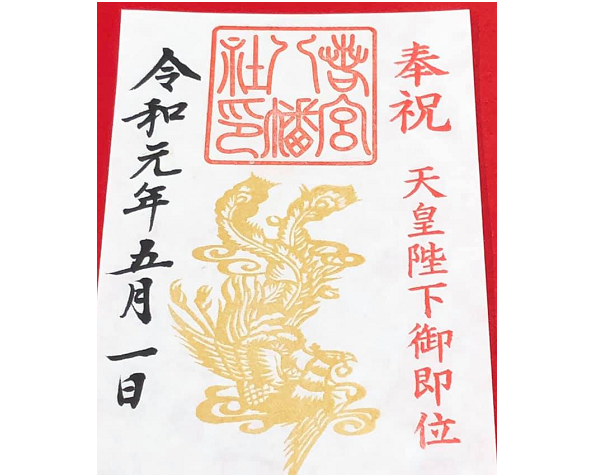 奉祝 天皇陛下御即位
若宮八幡社印
令和元年五月一日